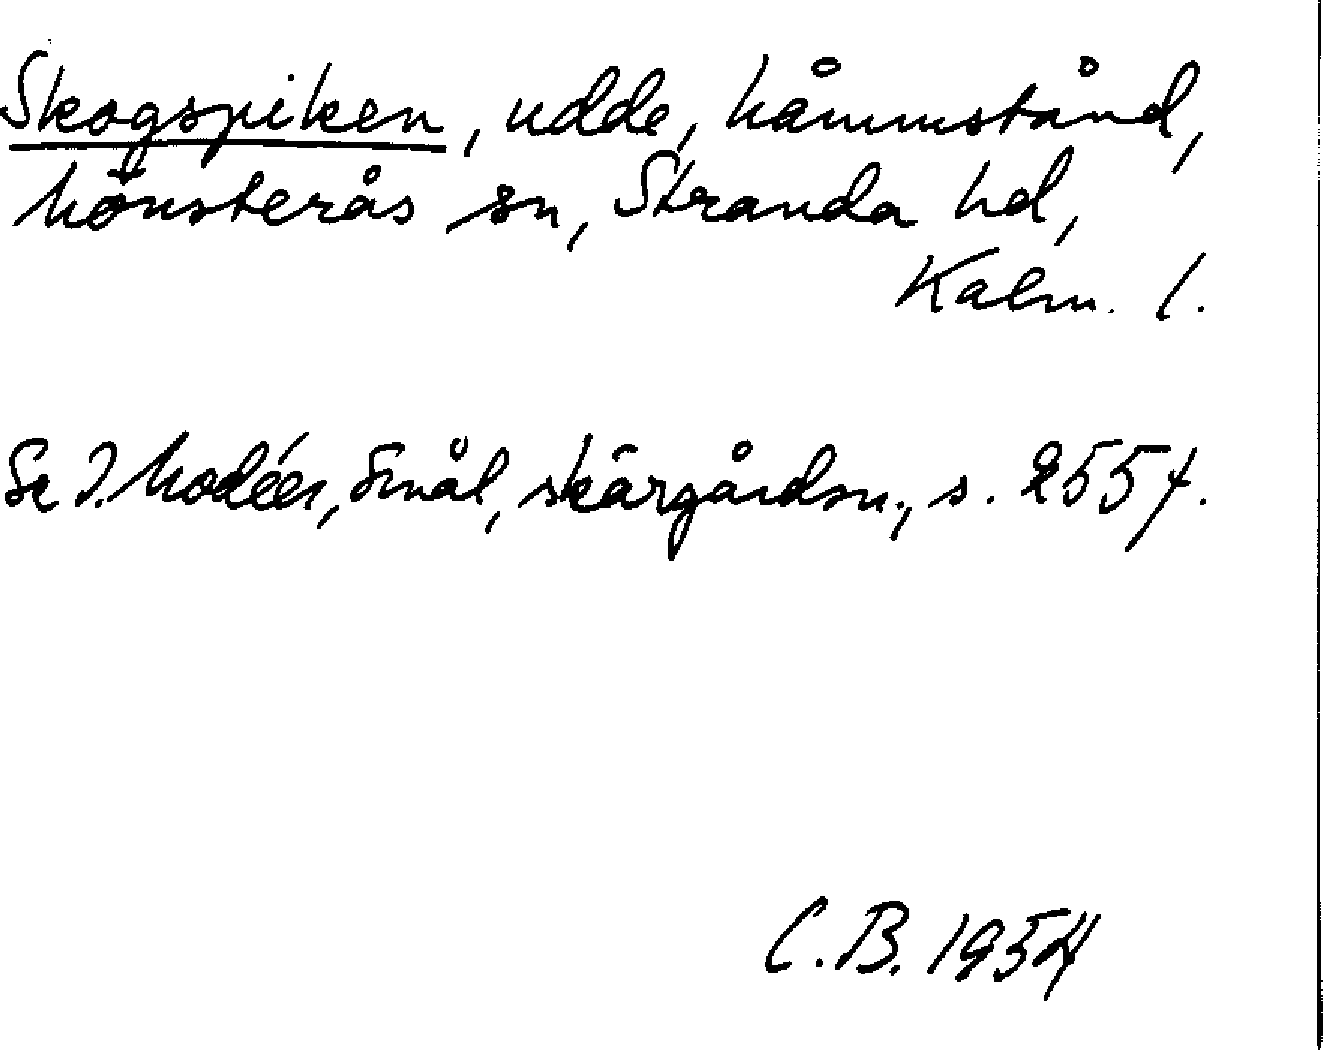 Skogspiken, udde, Nåmmstånd,
Mönsterås sn, Stranda hd,
Kalm. l.
Se I. Modéer, Smål, skärgårdsn., s. 255 f.
C.B. 1954